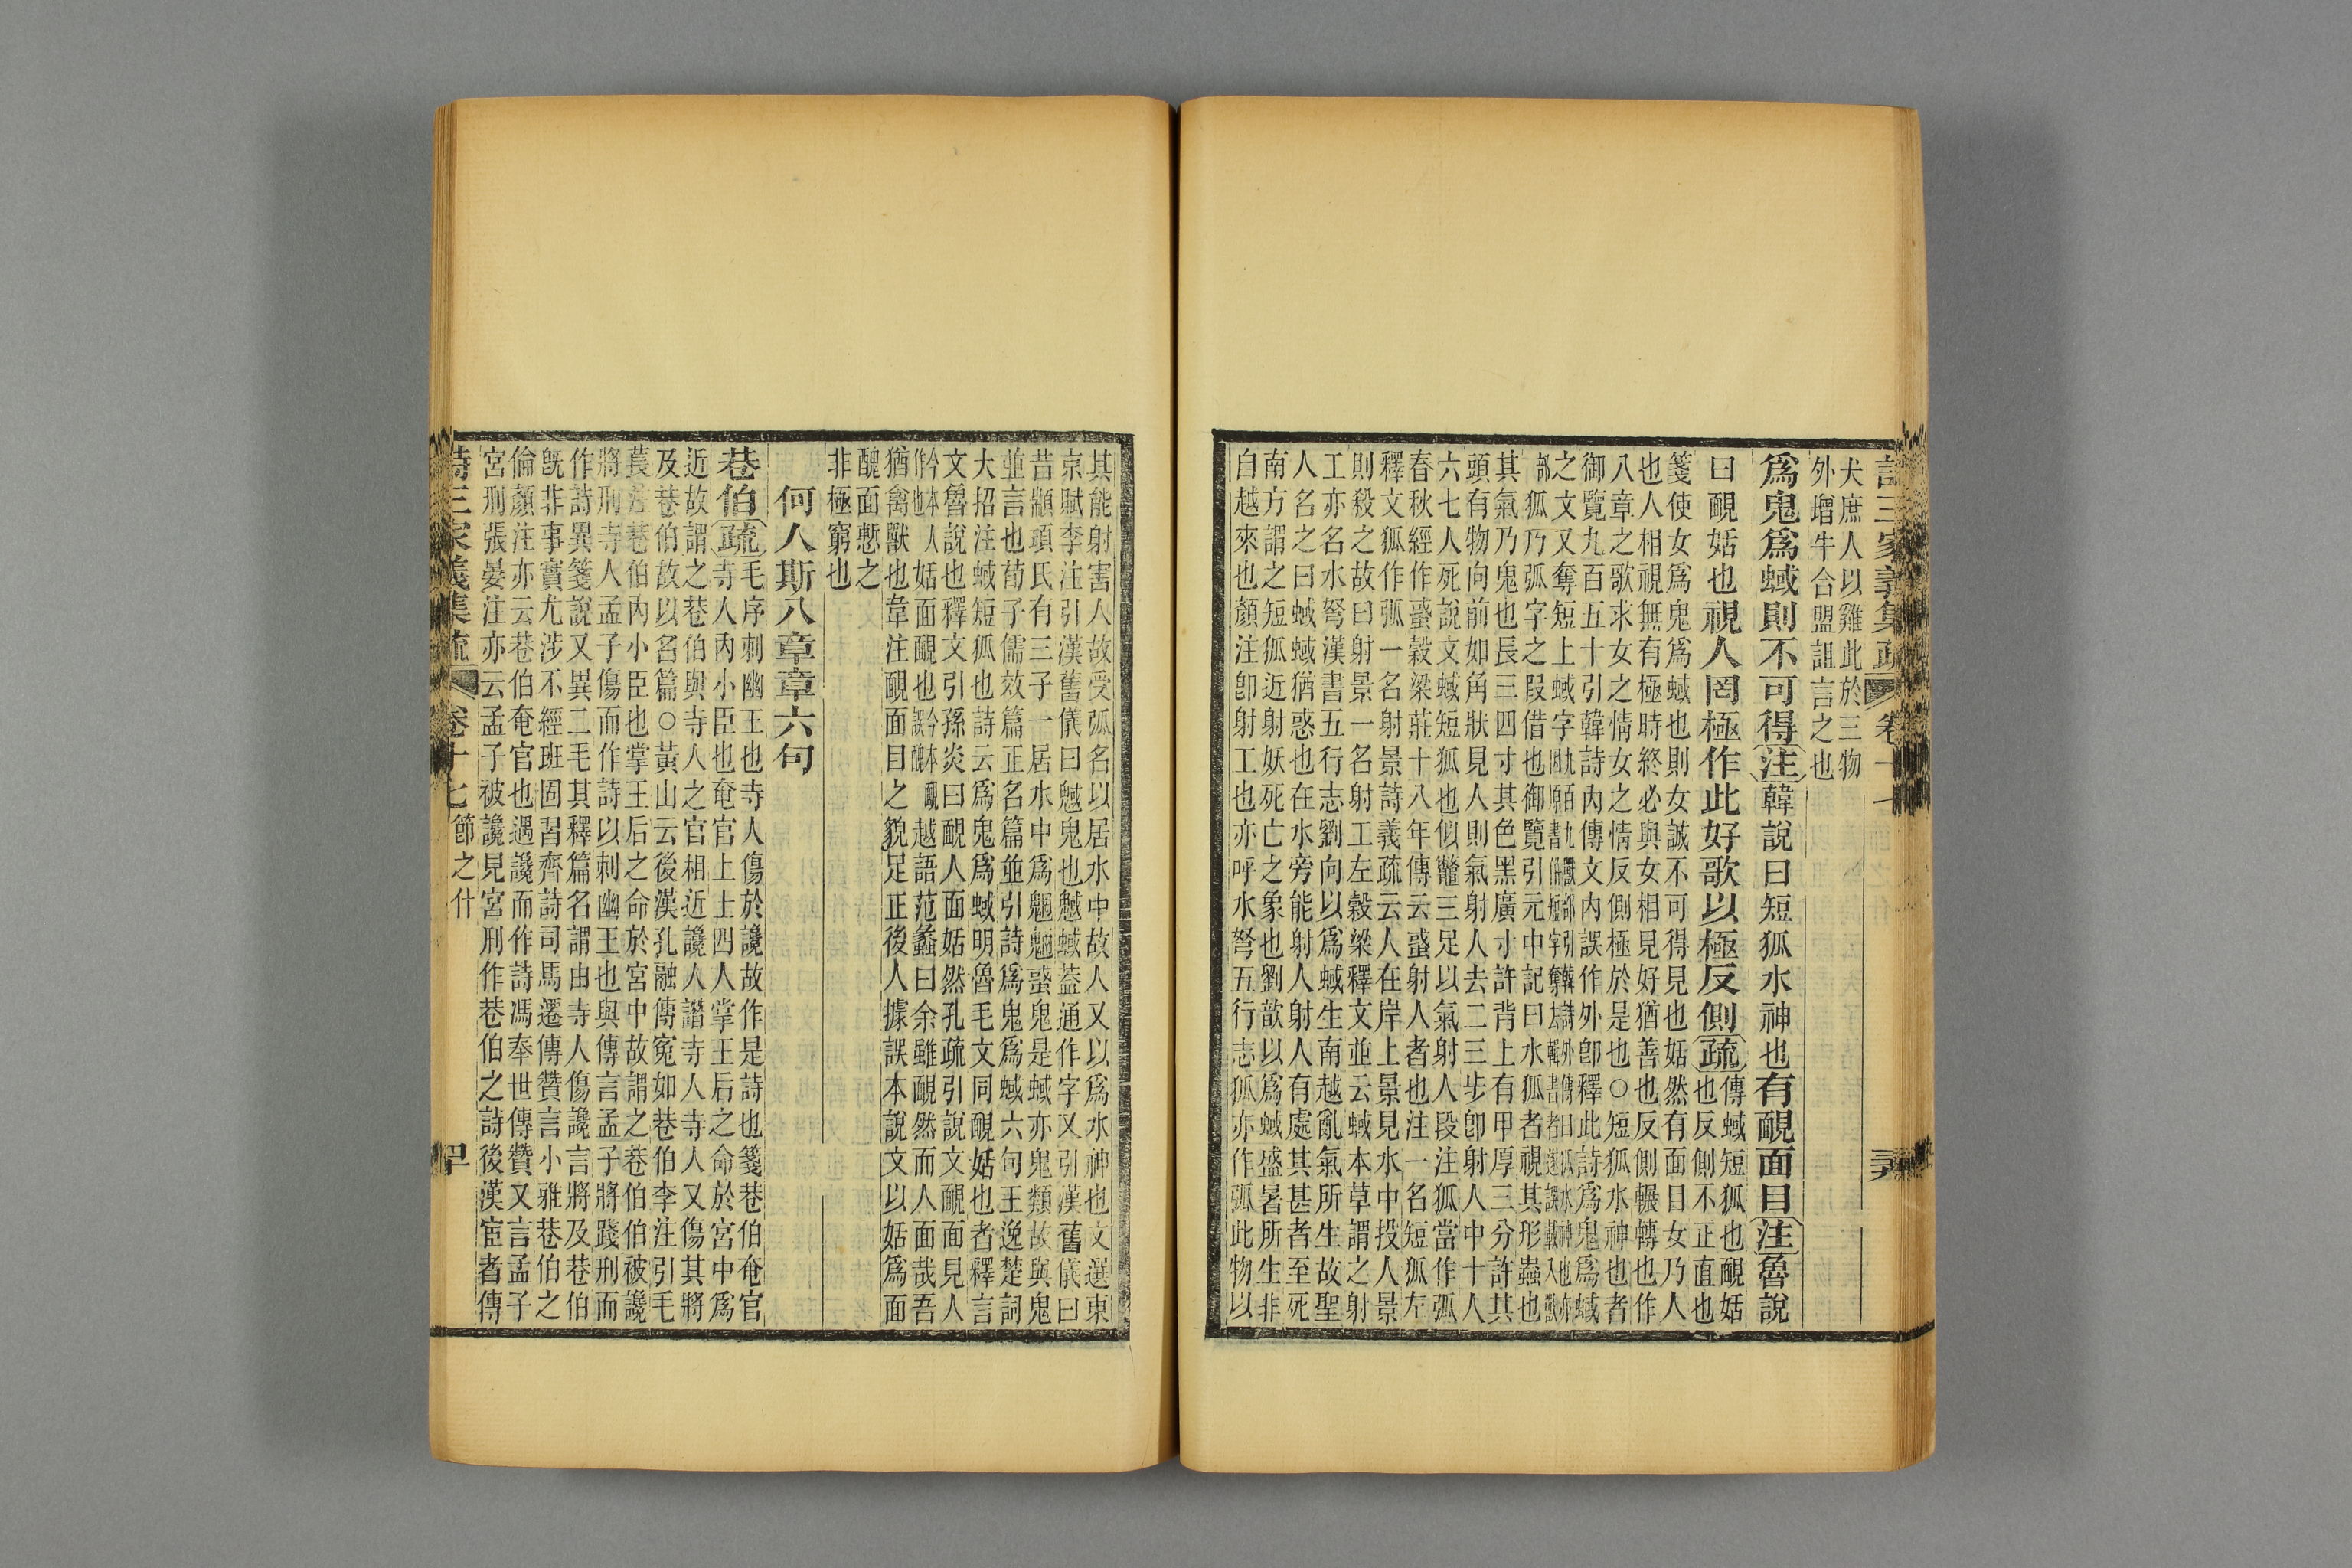 犬庶人以雞此於三物
外增牛合盟詛言之也
爲鬼爲蜮則不可得注韓說曰短狐水神也有靦面目注魯說
曰靦姡也視人罔極作此好歌以極反側疏傳蜮短狐也靦姡
也反側不正直也
箋使女爲鬼爲蜮也則女誠不可得見也姡然有面目女乃人
也人相視無有極時終必與女相見好猶善也反側輾轉也作
八章之歌求女之情女之情反側極於是也○短狐水神也者
御覽九百五十引韓詩內傳文內誤作外卽釋此詩爲鬼爲蜮
之文又奪短上蜮字
狐乃弧字之叚借也御覽引元中記曰水狐者視其形蟲也
其氣乃鬼也長三四寸其色黑廣寸許背上有甲厚三分許其
頭有物向前如角狀見人則氣射人去二三步卽射人中十人
六七人死說文蜮短狐也似鼈三足以氣射人段注狐當作弧
春秋經作蜚穀梁莊十八年傳云蜚射人者也注一名短狐左
釋文狐作弧一名射景詩義疏云人在岸上景見水中投人景
則殺之故曰射景一名射工左穀梁釋文並云蜮本草謂之射
工亦名水弩漢書五行志劉向以爲蜮生南越亂氣所生故聖
人名之曰蜮蜮猶惑也在水旁能射人射人有處其甚者至死
南方謂之短狐近射妖死亡之象也劉歆以爲蜮盛暑所生非
自越來也顏注卽射工也亦呼水弩五行志狐亦作弧此物以
其能射害人故受弧名以居水中故人又以爲水神也文選東
京賦李注引漢舊儀曰魊鬼也魊蜮蓋通作字又引漢舊儀曰
昔顓頊氏有三子一居水中爲魍魎蜮鬼是蜮亦鬼類故與鬼
並言也荀子儒效篇正名篇並引詩爲鬼爲蜮六句王逸楚詞
大招注蜮短狐也詩云爲鬼爲蜮明魯毛文同靦姡也者釋言
文魯說也釋文引孫炎曰靦人面姡然孔疏引說文靦面見人
姡面靦也 越語范蠡曰余雖靦然而人面哉吾
猶禽獸也韋注靦面目之貌足正後人據誤本說文以姡爲面
醜面慙之
非極窮也
何人斯八章章六句
巷伯疏毛序刺幽王也寺人傷於讒故作是詩也箋巷伯奄官
寺人內小臣也奄官上士四人掌王后之命於宮中爲
近故謂之巷伯與寺人之官相近讒人譖寺人寺人又傷其將
及巷伯故以名篇○黃山云後漢孔融傳冤如巷伯李注引毛
萇注巷伯內小臣也掌王后之命於宮中故謂之巷伯伯被讒
將刑寺人孟子傷而作詩以刺幽王也與傳言孟子將踐刑而
作詩異箋說又異二毛其釋篇名謂由寺人傷讒言將及巷伯
旣非事實尤涉不經班固習齊詩司馬遷傳贊言小雅巷伯之
倫顏注亦云巷伯奄官也遇讒而作詩馮奉世傳贊又言孟子
宮刑張晏注亦云孟子被讒見宮刑作巷伯之詩後漢宦者傳
詩三家義集疏 卷十七 節之什